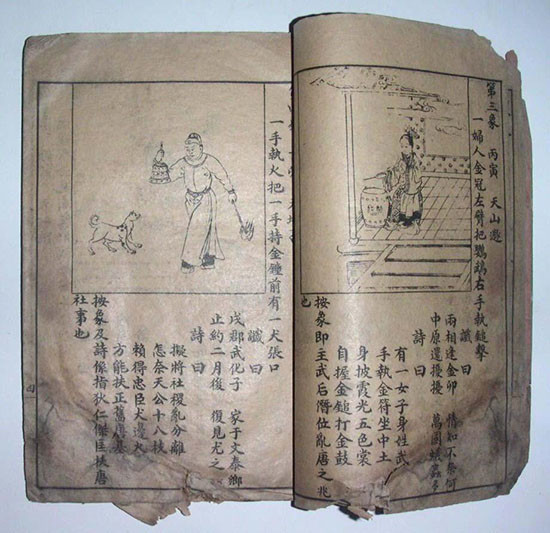 第三象 丙寅 天山遯
一婦人金冠左臂把鸚鵡右手執鎚擊
讖曰
兩相逢金卯 情知不奈何
中原還擾擾 萬國蟻蟲多
詩曰
有一女子身姓武
手執金符坐中土
身披霞光五色裳
自握金鎚打金鼓
按象即主武后僭位亂唐之兆
也
一手執火把一手持金鐘前有一犬張口
讖曰
戌郡武化子 家于文泰鄉
止約二月後 復見尤之
詩曰
擬將社稷亂分離
怎奈天公十八枝
賴得忠臣犬邊火
方能扶正舊唐基
按象及詩係指狄仁傑匡扶唐
社事也